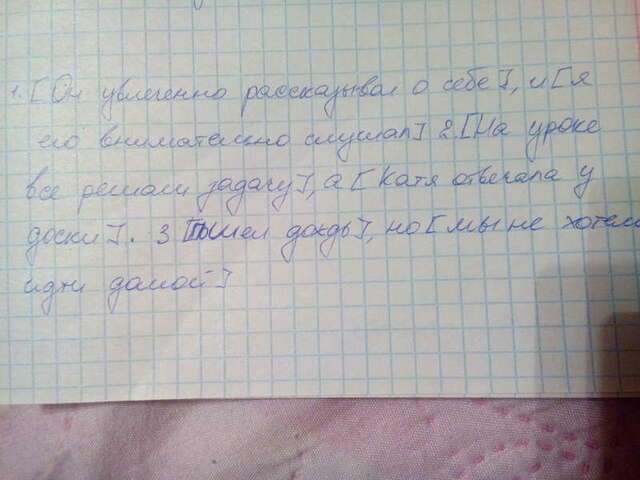 1. [Он увлеченно рассказывал о себе], и [я
его внимательно слушал] 2 [На уроке
все решали задачу], а [Катя отвечала у
доски]. 3 [Пошел дождь], но [мы не хотели
идти домой]